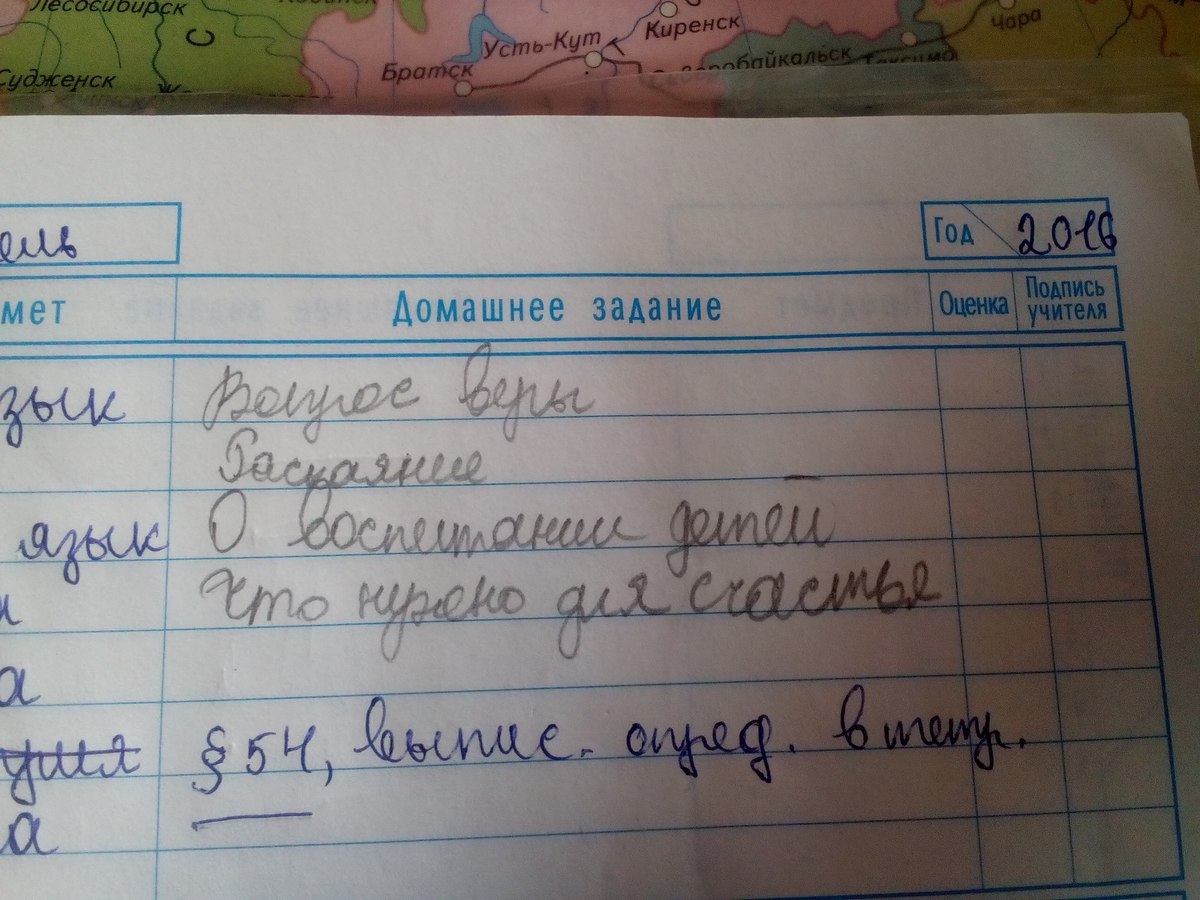 Лесосибирск
С
Усть-Кут
Киренск
Чара
Судженск
Братск
Таксимо
ель
Год 2016
мет Домашнее задание Оценка Подпись учителя
зык Вопрос веры
Раскаяние
язык О воспитании детей
Что нужно для счастья
а
§54, выпис. опред. в тетр.
а